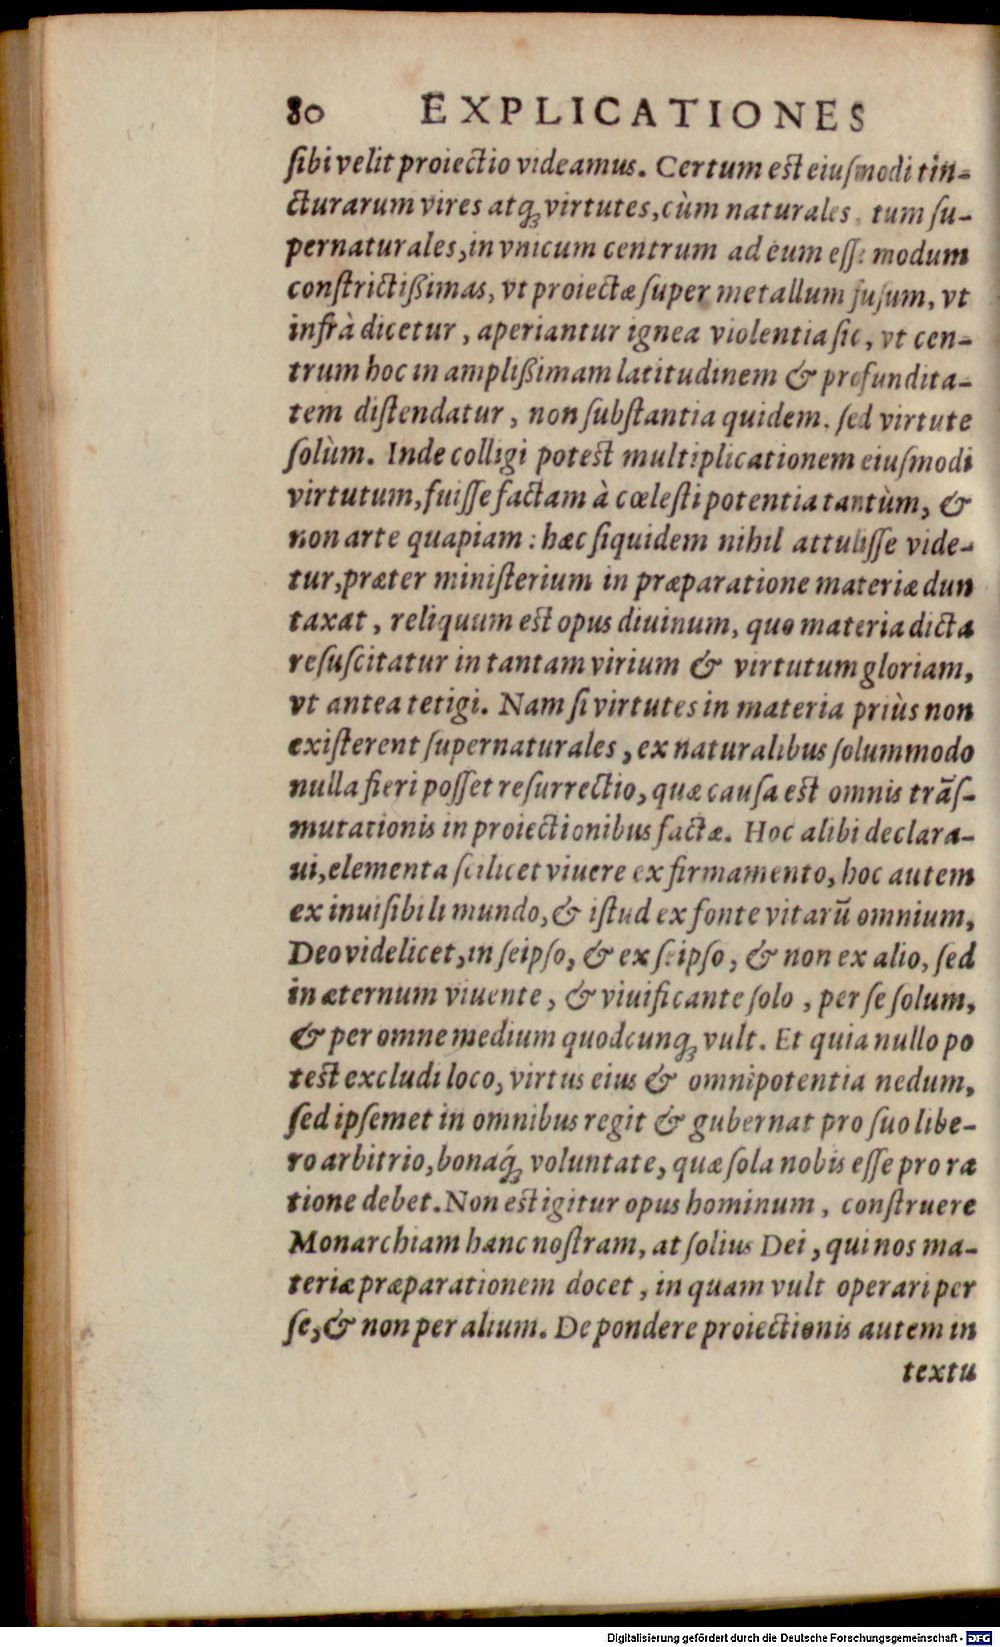 80 EXPLICATIONES
ſibi velit proiectio videamus. Certum est eiuſmodi tin-
cturarum vires atq́; virtutes, cùm naturales, tum ſu-
pernaturales, in vnicum centrum ad eum eſſe modum
conſtrictißimas, vt proiectæ ſuper metallum fuſum, vt
infrà dicetur, aperiantur ignea violentia ſic, vt cen-
trum hoc in amplißimam latitudinem & profundita-
tem diſtendatur, non ſubſtantia quidem, ſed virtute
ſolùm. Inde colligi potest multiplicationem eiuſmodi
virtutum, fuiſſe factam à cœleſti potentia tantùm, &
non arte quapiam: hæc ſiquidem nihil attuliſſe vide-
tur, præter miniſterium in præparatione materiæ dun
taxat, reliquum est opus diuinum, quo materia dicta
reſuſcitatur in tantam virium & virtutum gloriam,
vt antea tetigi. Nam ſi virtutes in materia priùs non
exiſterent ſupernaturales, ex naturalibus ſolummodo
nulla fieri poſſet reſurrectio, quæ cauſa est omnis trãſ-
mutationis in proiectionibus factæ. Hoc alibi declara-
ui, elementa ſcilicet viuere ex firmamento, hoc autem
ex inuiſibili mundo, & iſtud ex fonte vitarũ omnium,
Deo videlicet, in ſeipſo, & ex ſeipſo, & non ex alio, ſed
in æternum viuente, & viuificante ſolo, per ſe ſolum,
& per omne medium quodcunq; vult. Et quia nullo po
test excludi loco, virtus eius & omnipotentia nedum,
ſed ipſemet in omnibus regit & gubernat pro ſuo libe-
ro arbitrio, bonaq́; voluntate, quæ ſola nobis eſſe pro ra
tione debet. Non est igitur opus hominum, conſtruere
Monarchiam hanc noſtram, at ſolius Dei, qui nos ma-
teriæ præparationem docet, in quam vult operari per
ſe, & non per alium. De pondere proiectionis autem in
textu
Digitalisierung gefördert durch die Deutsche Forschungsgemeinschaft - DFG